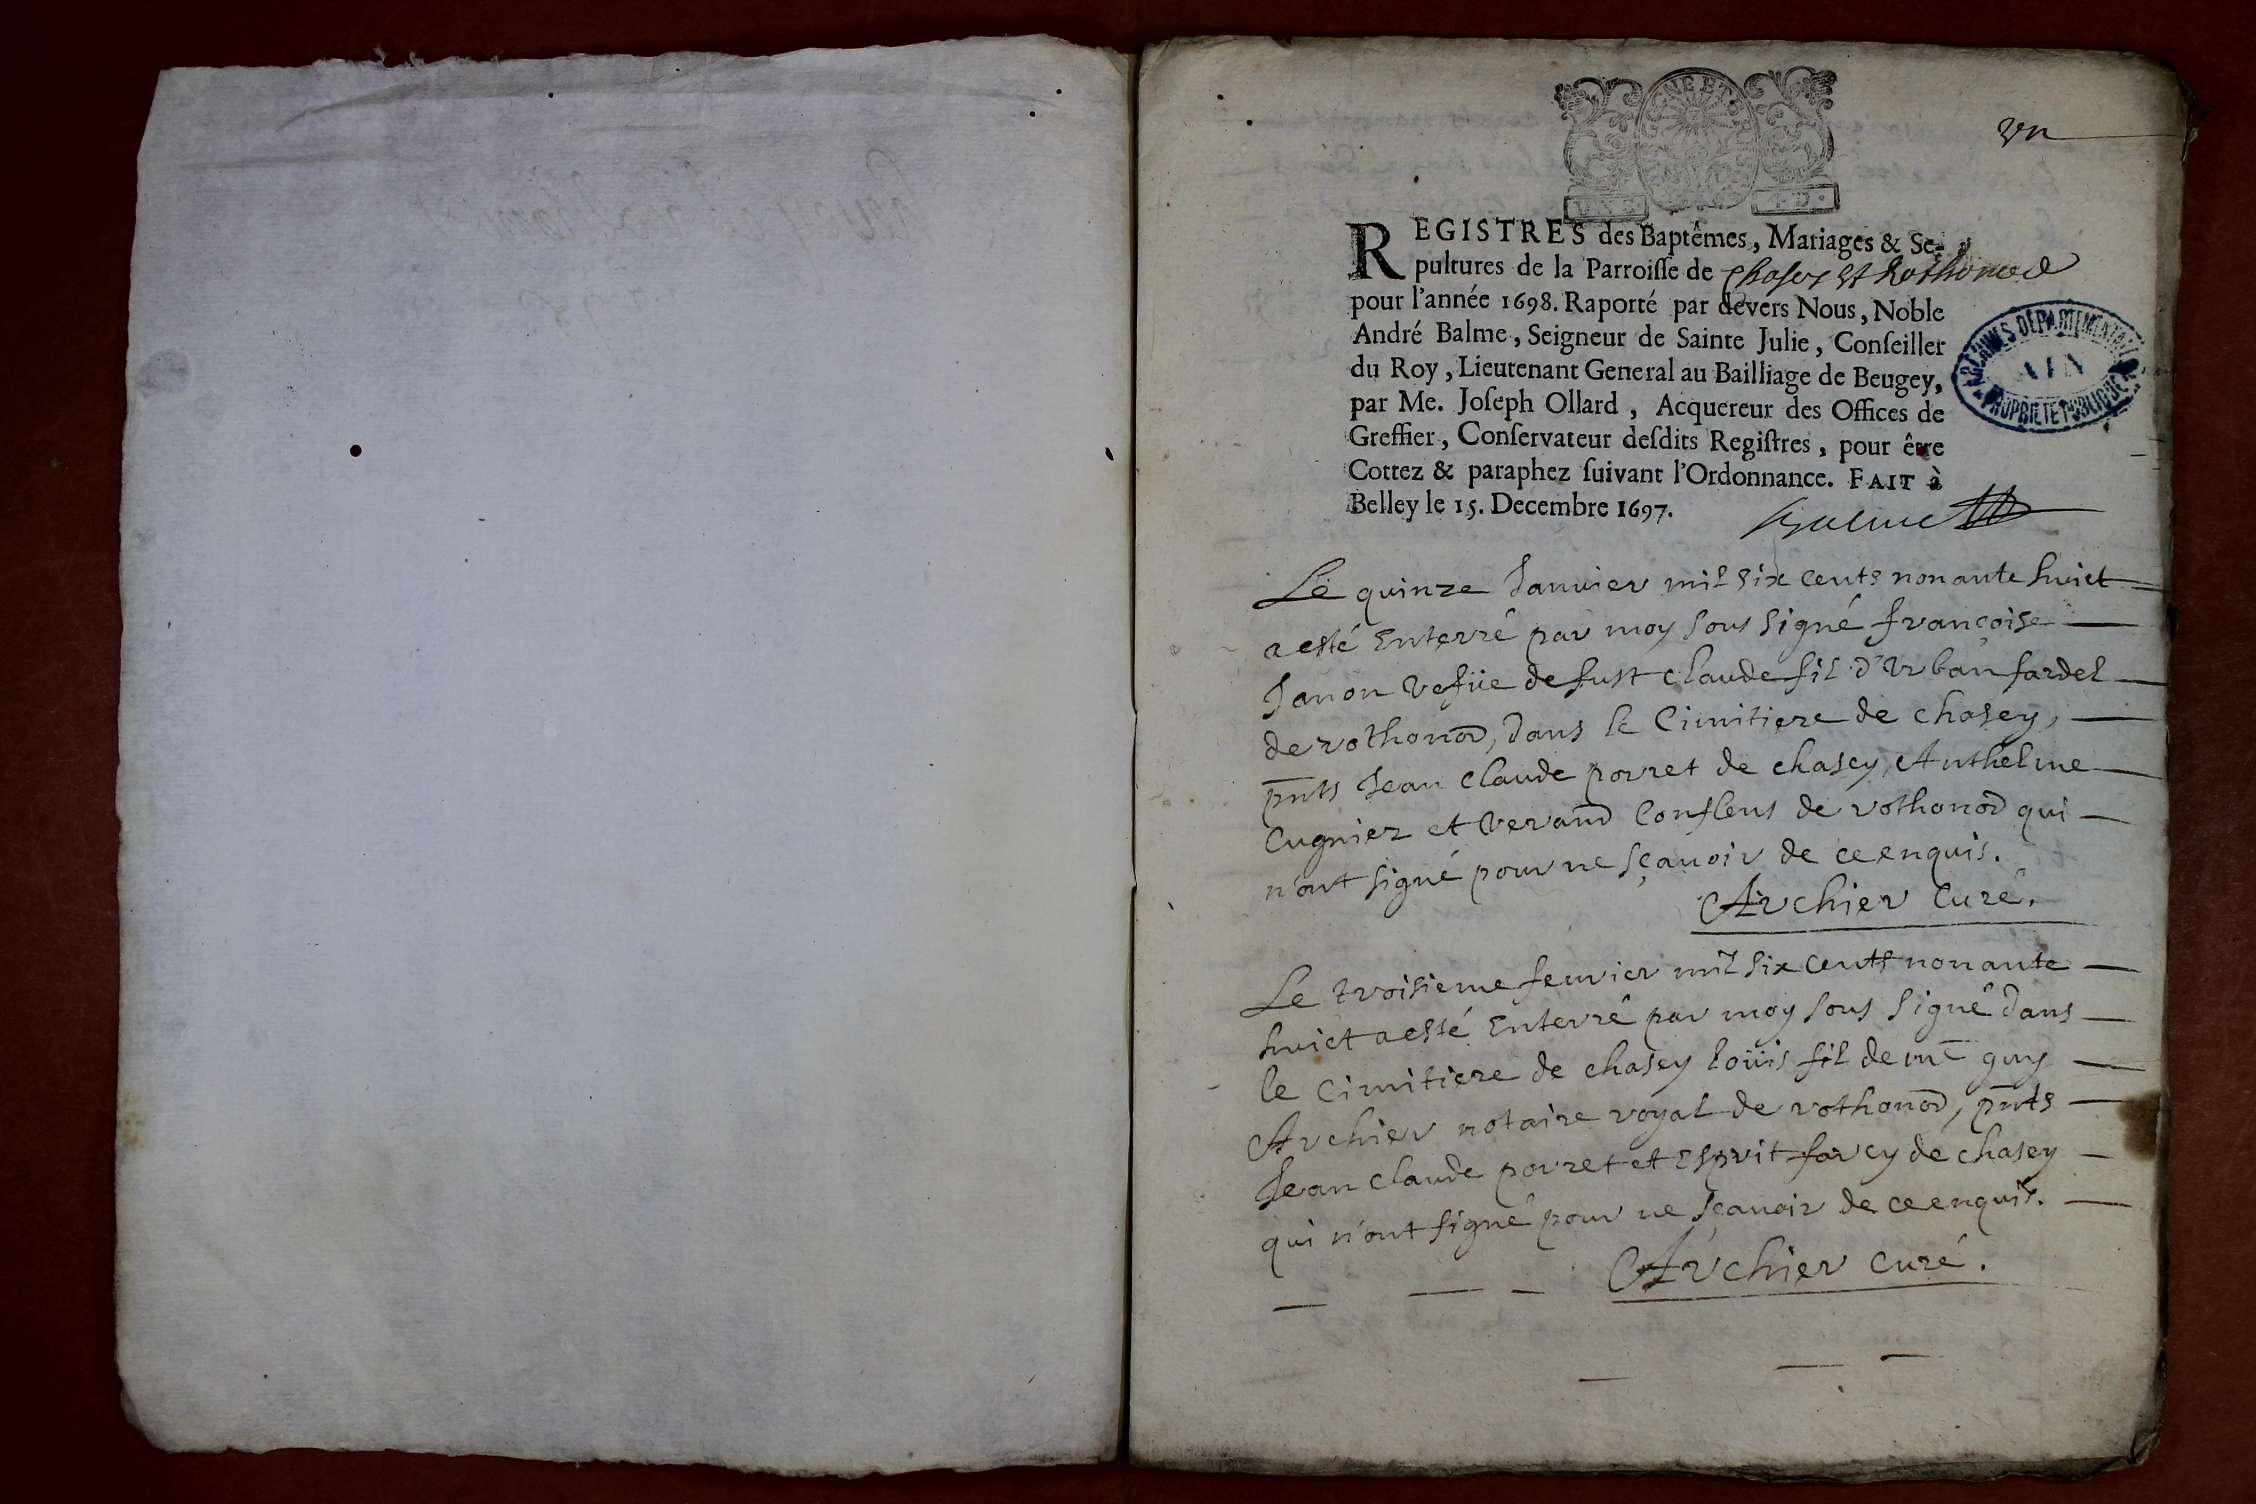 vn
REGISTRES des Baptêmes, Mariages & Se-
pultures de la Parroisse de Chasey et Rothonod
pour l'année 1698. Raporté par devers Nous, Noble
André Balme, Seigneur de Sainte Julie, Conseiller
du Roy, Lieutenant General au Bailliage de Beugey,
par Me. Joseph Ollard, Acquereur des Offices de
Greffier, Conservateur desdits Registres, pour être
Cottez & paraphez suivant l'Ordonnance. FAIT à
Belley le 15. Decembre 1697.
Balme
ARCHIVES DEPARTEMENTALES
AIN
PROPRIETE PUBLIQUE
Le quinze Janvier mil six cents nonante huict
a esté Enterré par moy sous signé françoise
Janon vefüe de fust claude fil d'Urban fardel
de rothonod, dans le Cimitiere de chasey,
pnts Jean claude porret de chasey, Anthelme
Cugnier et Verand Conflens de rothonod qui
n'ont signé pour ne sçauoir de ce enquis.
Archier Curé.
Le troisieme feurier mil six cents nonante
huict a esté Enterré par moy sous signé dans
le Cimitiere de chasey loüis fil de me guy
Archier notaire royal de rothonod, pnts
Jean claude porret et Esprit farcy de chasey
qui n'ont signé pour ne sçauoir de ce enquis.
Archier curé.